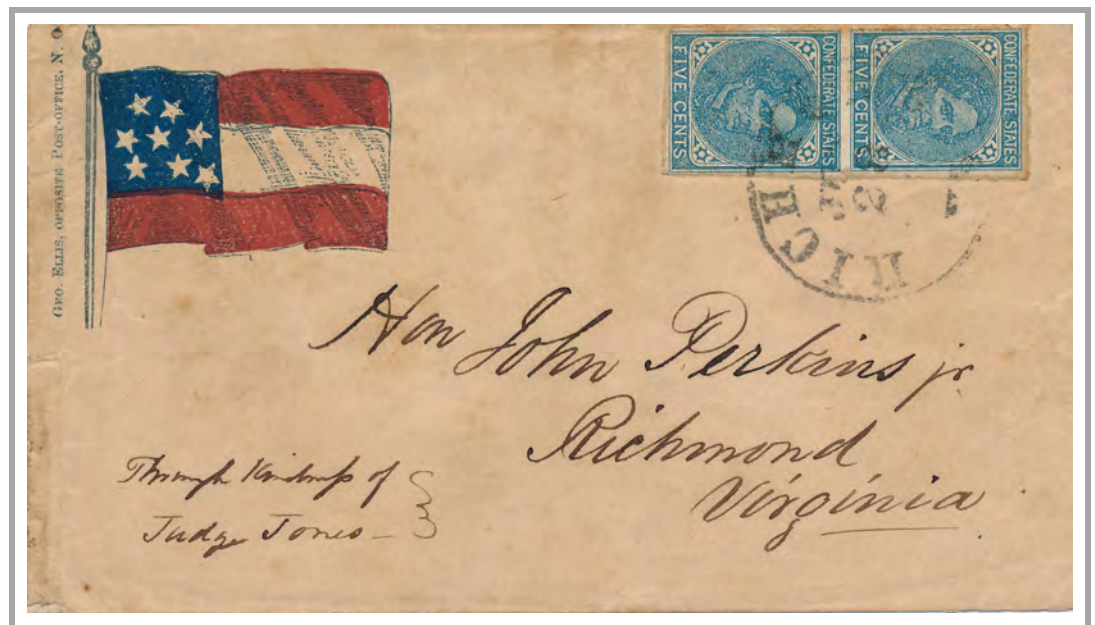 GEO. ELLIS, OPPOSITE POST-OFFICE, N. O
FIVE CENTS
CONFEDERATE STATES
FIVE CENTS
CONFEDERATE STATES
RICH
Hon John Perkins jr
Richmond
Virginia
Through Kindness of
Judge Jones